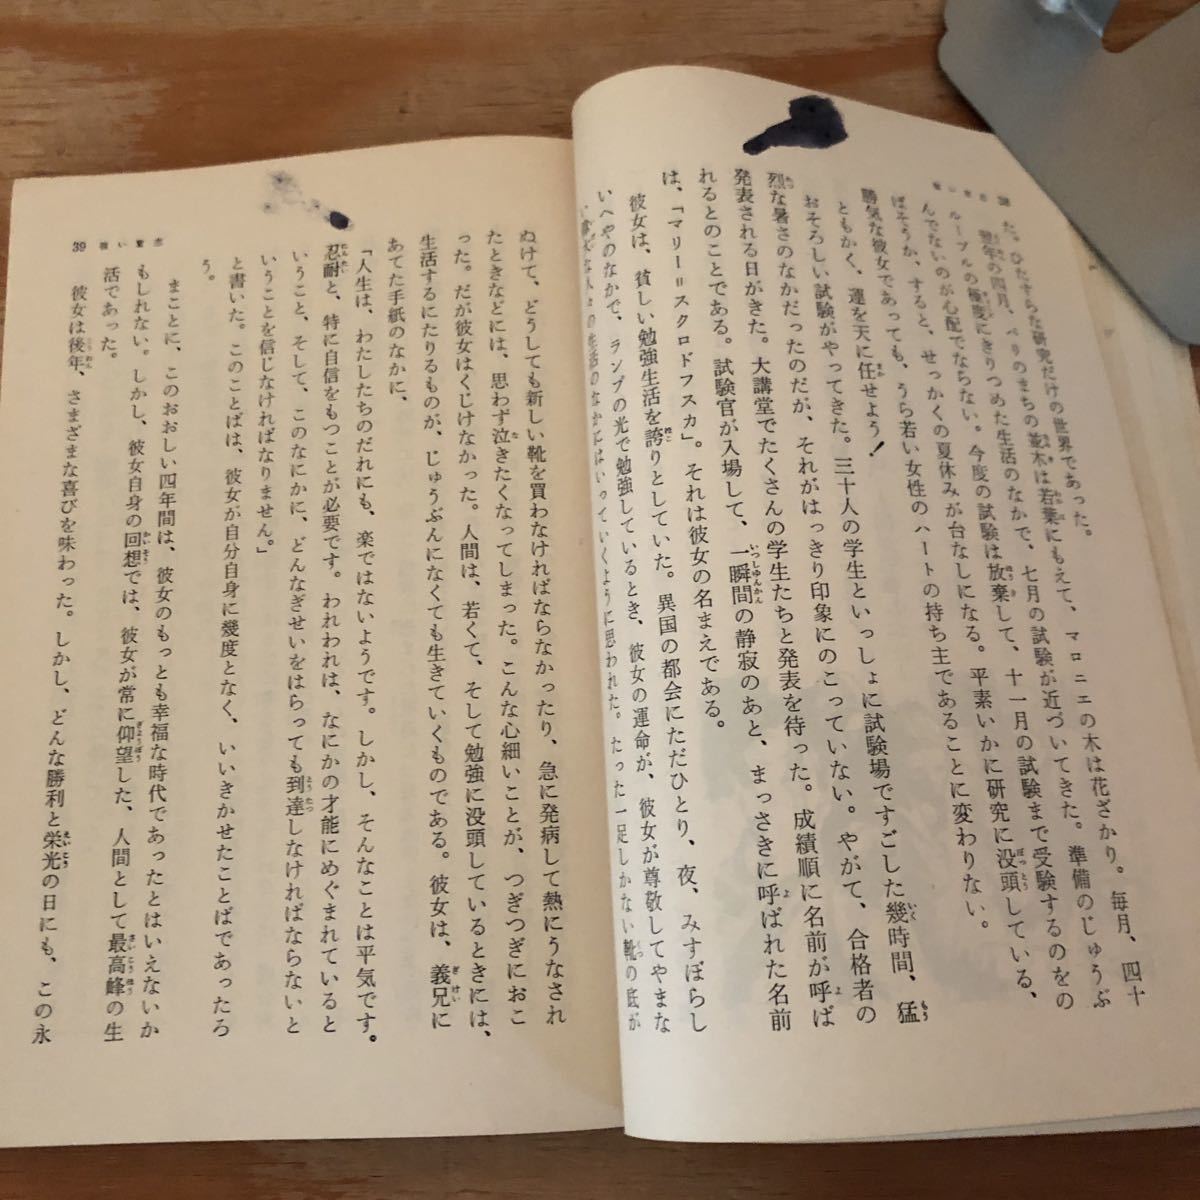 38
強い意志
た。ひたすらな研究だけの世界であった。
翌年の四月、パリのまちの並木は若葉にもえて、マロニエの木は花ざかり。毎月、四十
ルーブルの極度にきりつめた生活のなかで、七月の試験が近づいてきた。準備のじゅうぶ
んでないのが心配でならない。今度の試験は放棄して、十一月の試験まで受験するのをの
ばそうか、すると、せっかくの夏休みが台なしになる。平素いかに研究に没頭している、
勝気な彼女であっても、うら若い女性のハートの持ち主であることに変わりない。
ともかく、運を天に任せよう!
おそろしい試験がやってきた。三十人の学生といっしょに試験場ですごした幾時間、猛
烈な暑さのなかだったのだが、それがはっきり印象にのこっていない。やがて、合格者の
発表される日がきた。大講堂でたくさんの学生たちと発表を待った。成績順に名前が呼ば
れるとのことである。試験官が入場して、一瞬間の静寂のあと、まっさきに呼ばれた名前
は、「マリー=スクロドフスカ」。それは彼女の名まえである。
彼女は、貧しい勉強生活を誇りとしていた。異国の都会にただひとり、夜、みすぼらし
いへやのなかで、ランプの光で勉強しているとき、彼女の運命が、彼女が尊敬してやまな
い、偉大な人々の生活のなかにはいっていくように思われた。たった一足しかない靴の底が
ぬけて、どうしても新しい靴を買わなければならなかったり、急に発病して熱にうなされ
たときなどには、思わず泣きたくなってしまった。こんな心細いことが、つぎつぎにおこ
った。だが彼女はくじけなかった。人間は、若くて、そして勉強に没頭しているときには、
生活するにたりるものが、じゅうぶんになくても生きていくものである。彼女は、義兄に
あてた手紙のなかに、
「人生は、わたしたちのだれにも、楽ではないようです。しかし、そんなことは平気です。
忍耐と、特に自信をもつことが必要です。われわれは、なにかの才能にめぐまれていると
いうこと、そして、このなにかに、どんなぎせいをはらっても到達しなければならないと
いうことを信じなければなりません。」
と書いた。このことばは、彼女が自分自身に幾度となく、いいきかせたことばであったろ
う。
まことに、このおおしい四年間は、彼女のもっとも幸福な時代であったとはいえないか
もしれない。しかし、彼女自身の回想では、彼女が常に仰望した、人間として最高峰の生
活であった。
彼女は後年、さまざまな喜びを味わった。しかし、どんな勝利と栄光の日にも、この永
39
強い意志